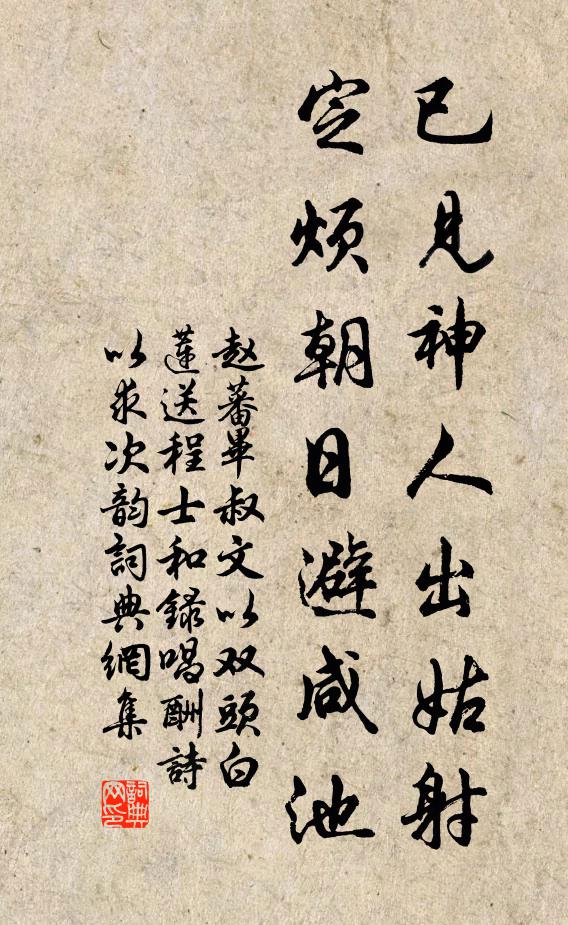 已見神人出姑射
定煩朝日避咸池
赵蕃畢叔文以双頭白
蓮送程士和録唱酬詩
以求次韵詞典網集
詞典网印